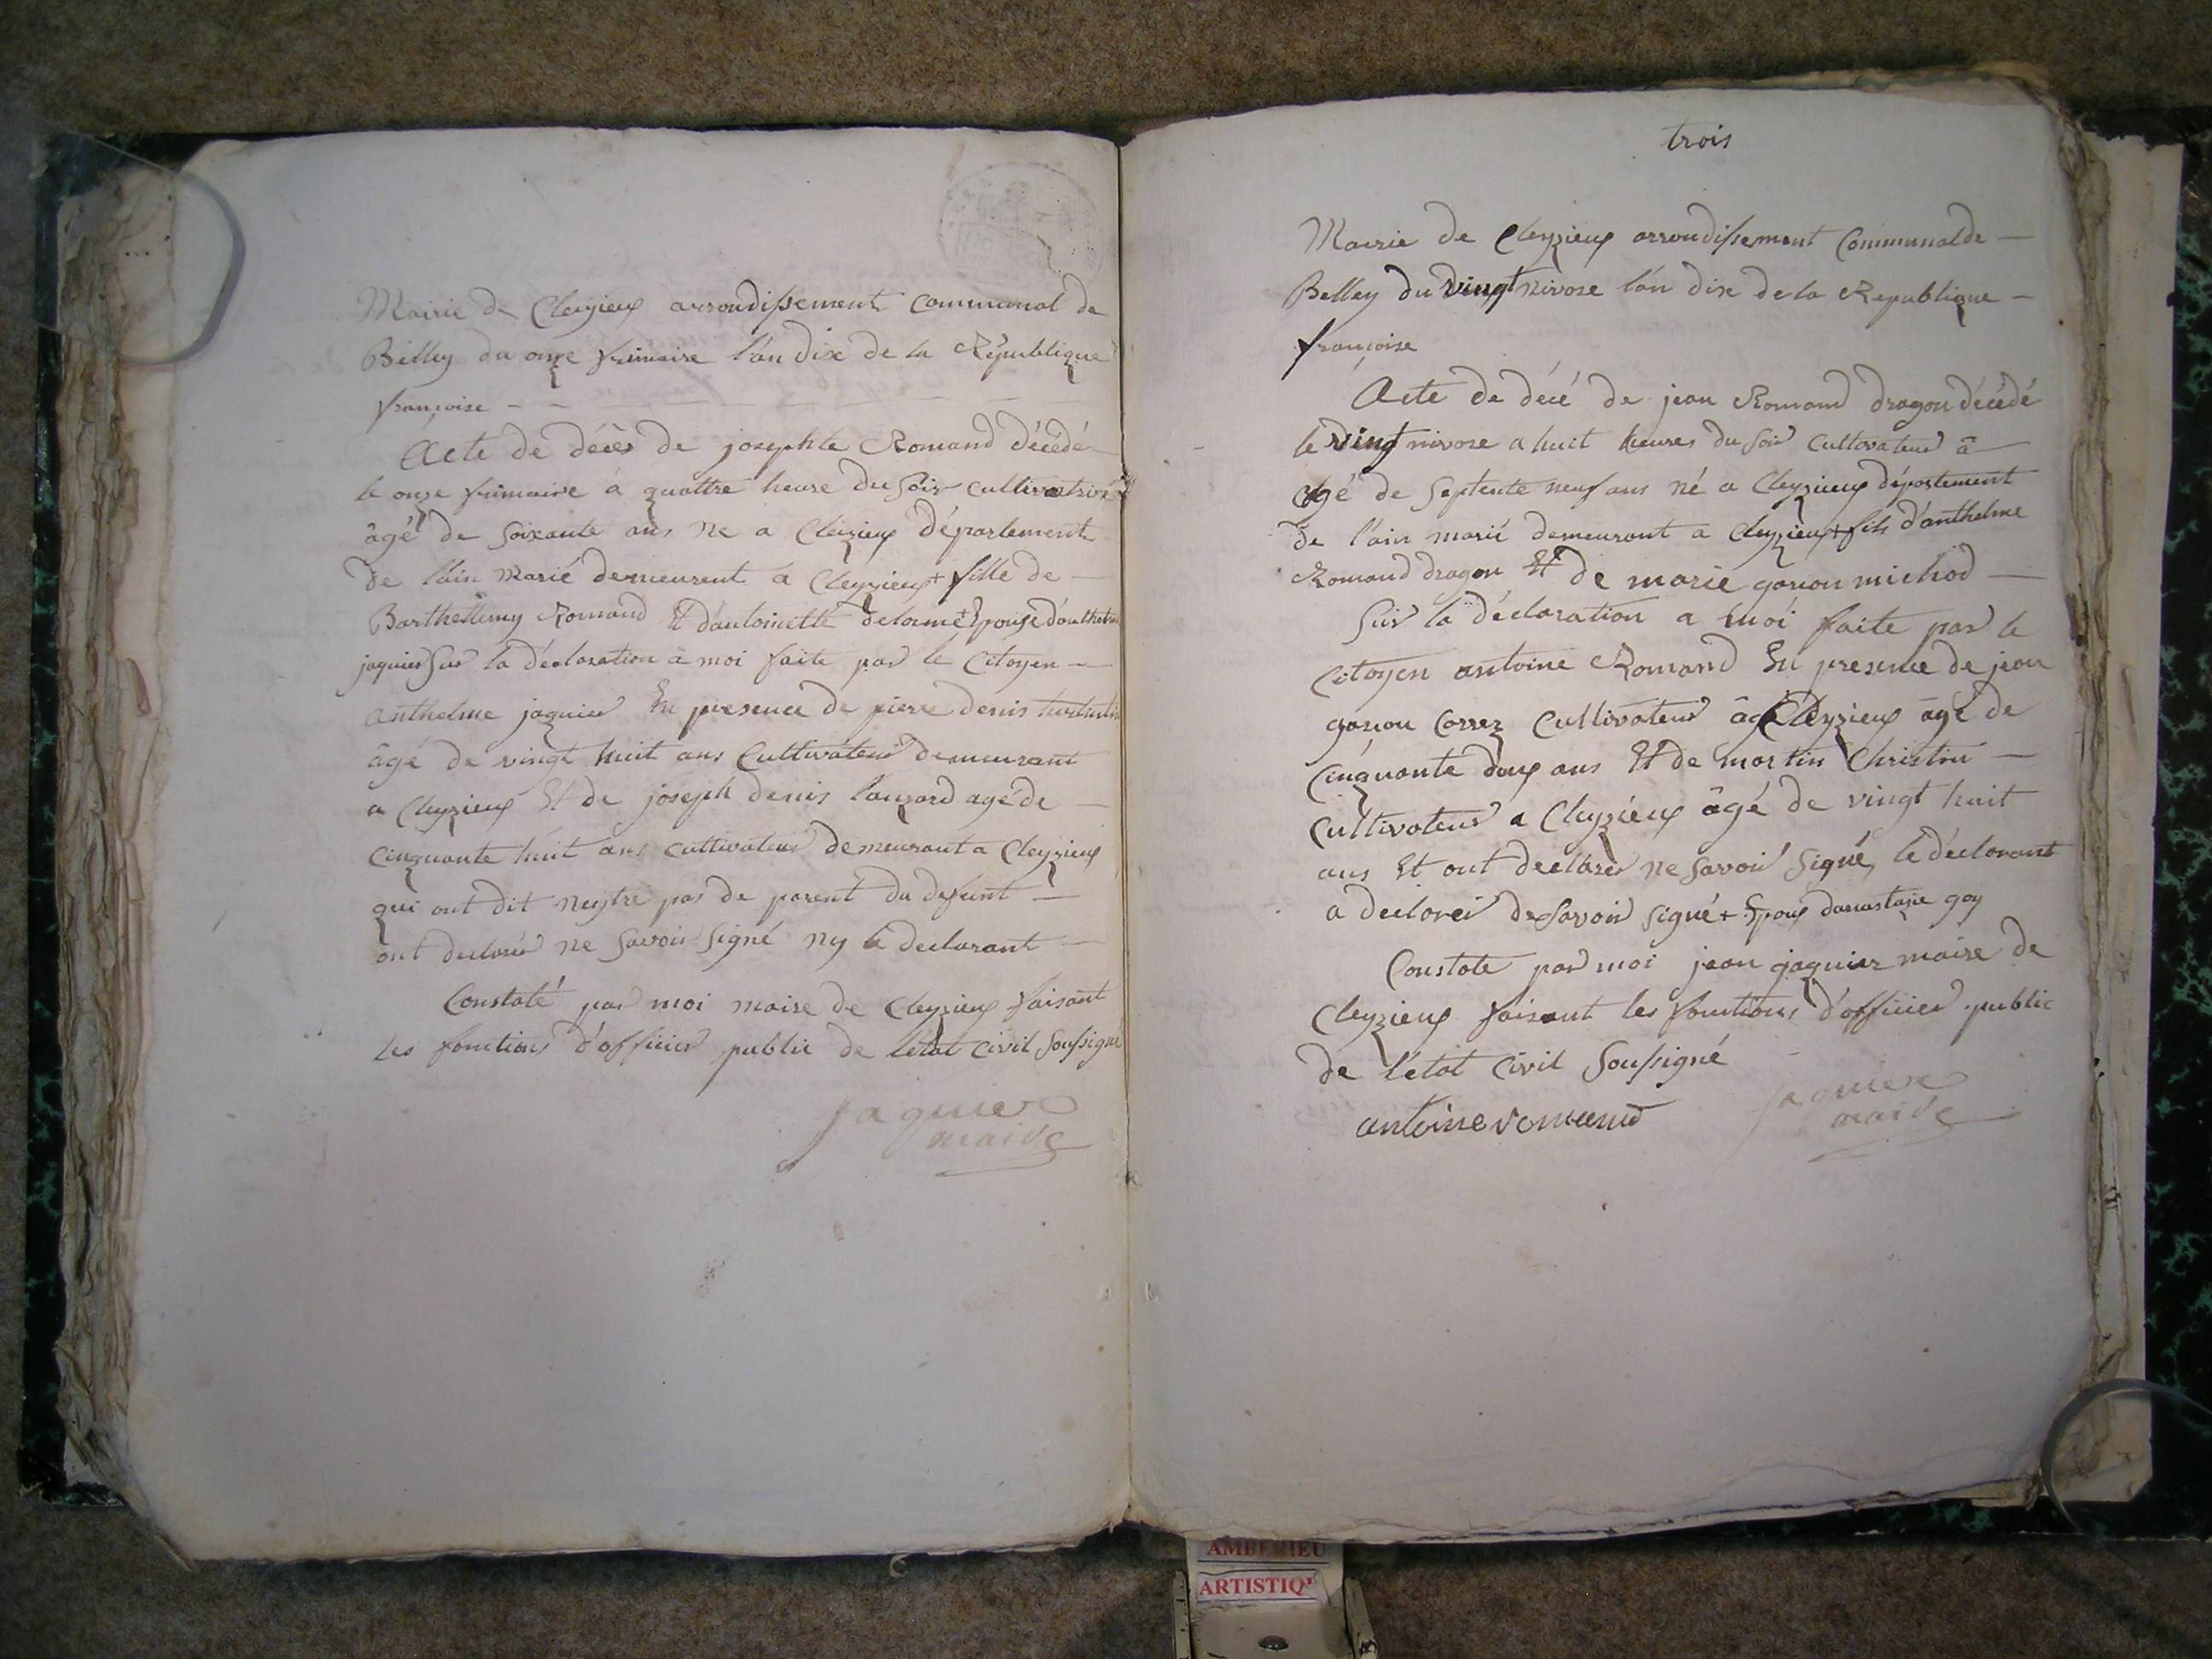 Mairie de Cleyzieux arrondissement communal de
Belley du onze frimaire l'an dix de la République
françoise
Acte de décès de josephte Romand décédé
le onze frimaire à quattre heure du soir cultivatrice
âgé de soixante ans né a Cleyzieux département
de l'ain Marié demeurent a Cleyzieux + fille de
Barthellemy Romand Et d'antoinette delorme + Epouse d'anthelme
jaquier Sur la déclaration à moi faite par le Citoyen
anthelme jaquier En presence de pierre denis
âgé de vingt huit ans Cultivateur demeurant
a Cleyzieux Et de joseph denis lanzard agé de
cinquante huit ans cultivateur demeurant a Cleyzieux
qui ont dit neytre pas de parent du defunt
ont declarer ne savoir signé ny le declarant
Constaté par moi maire de Cleyzieux faisant
les fonctions d'officier public de l'état civil Soussigné
jaquier
maire
trois
Mairie de Cleyzieux arrondissement Communal de
Belley du vingt nivose l'an dix de la Republique
françoise
Acte de décé de jean Romand dragon décédé
le vingt nivose a huit heures du soir cultivateur â
agé de septente neuf ans né a Cleyzieux département
de l'ain marié demeurant a Cleyzieux + fils d'anthelme
Romand dragon Et de marie garion michod
Sur la déclaration a moi faite par le
Citoyen antoine Romand En presence de jean
garion correz Cultivateur âg Cleyzieux âgé de
Cinquante doux ans Et de martin Christin
Cultivateur a Cleyzieux âgé de vingt huit
ans Et ont declarer ne savoir signé, le déclarant
a declarer de savoir signé + Epoux danastazie goy
Constate par moi jean jaquier maire de
Cleyzieux faisant les fonctions d'officier public
de l'état Civil Soussigné
antoine romand
jaquier
maire
AMBERIEU
ARTISTIQ